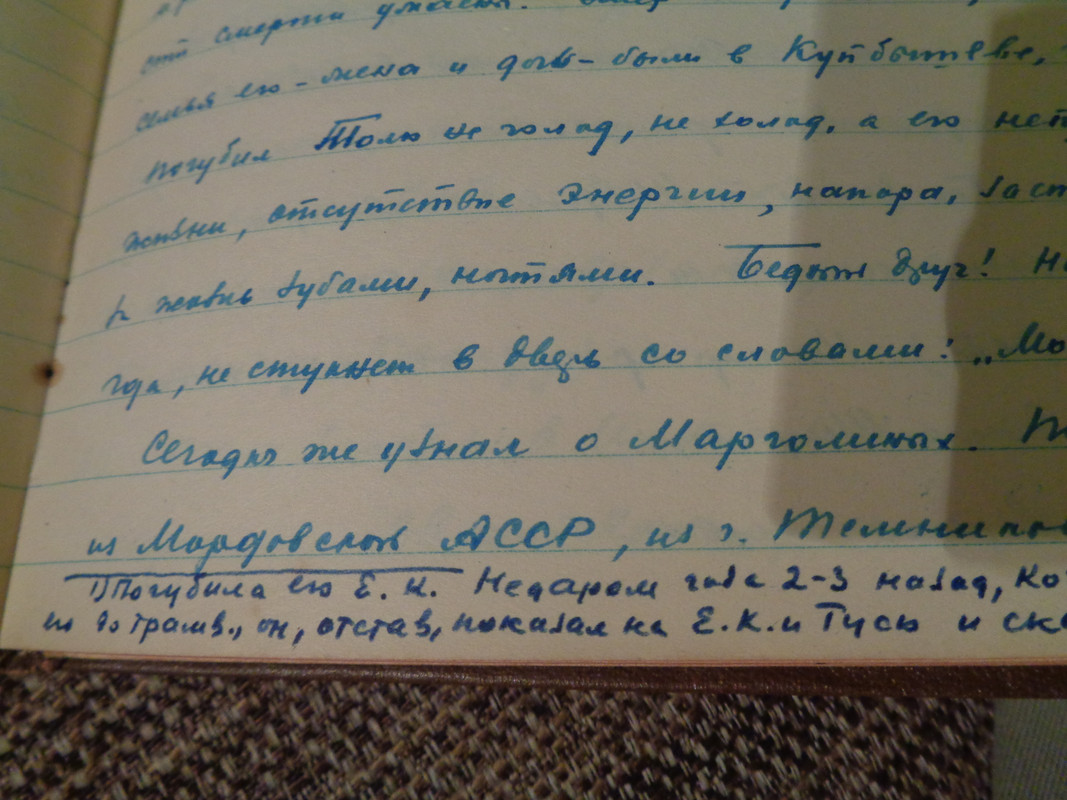 смерти
семья его - жена и дочь - были в Куйбышеве,
погубил Толю не голод, не холод, а его
жизни, отсутствие энергии, напора,
жизнь зубами, ногтями. Бедный друг!
года, не стукнет в дверь со словами: „Мо
Сегодня же узнал о Марголиных.
из Мордовской АССР, из г. Темников
1) Погубила его Е. К. Недаром года 2-3 назад, ко
он, отстав, показал на Е.К. и Тусю и ска